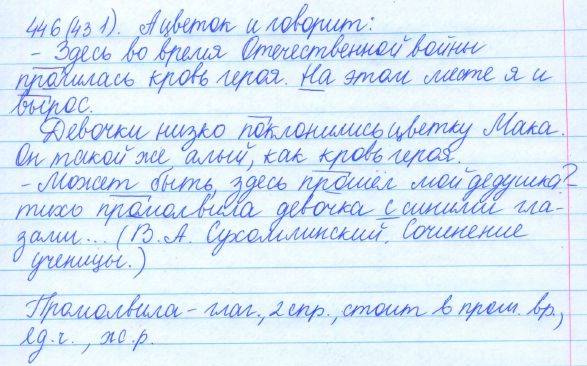 446(431). А цветок и говорит:
- Здесь во время Отечественной войны
пролилась кровь героя. На этом месте я и
вырос.
Девочки низко поклонились цветку Мака.
Он такой же алый, как кровь героя.
- Может быть, здесь прошёл мой дедушка? -
тихо промолвила девочка с синими гла-
зами... (В. А. Сухомлинский. Сочинение
ученицы.)
Промолвила - глаг., 2 спр., стоит в прош. вр.,
ед.ч., ж.р.